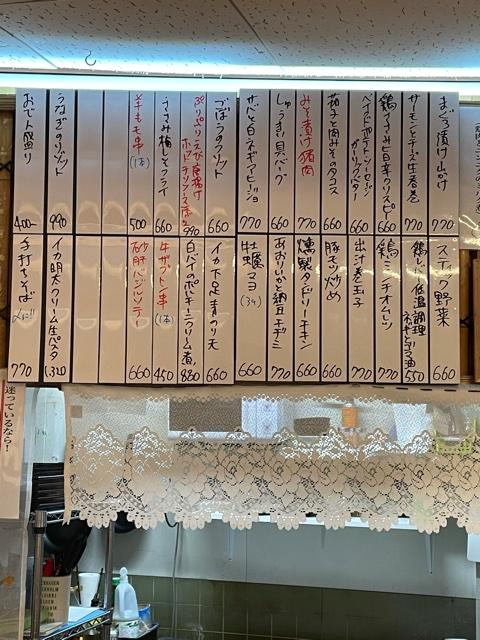 まぐろ漬け山かけ
770
サーモンとチーズ生春巻
770
鶏ささみ旨辛クリスピー
660
ベイクドポテトソーセージ
ガーリックバター
茄子と肉みそのタコス
660
みそ漬け猪肉
770
しゅうまい
660
サバと白ネギアヒージョ
770
づぼラタクソット
660
ぷりぷりえび唐揚げ
ホットチリソース添え
990
ささみ梅しそフライ
660
羊もも串(1本)
500
うなぎのリゾット
990
おでん盛り
400~
スティック野菜
660
鶏レバー低温調理
ネギとゴマ油
550
鶏ミンチオムレツ
770
出汁巻玉子
660
豚モツ炒め
660
燻製タンドリーチキン
770
あおりいか納豆チヂミ
770
牡蠣マヨ(3ケ)
660
イカ下足青のり天
660
白バイのポルチーニクリーム煮
880
牛ザブトン串(1本)
450
砂肝バジルソテー
660
イカ明太クリーム生パスタ
1,320
手打ちそば
770
迷っているなら!